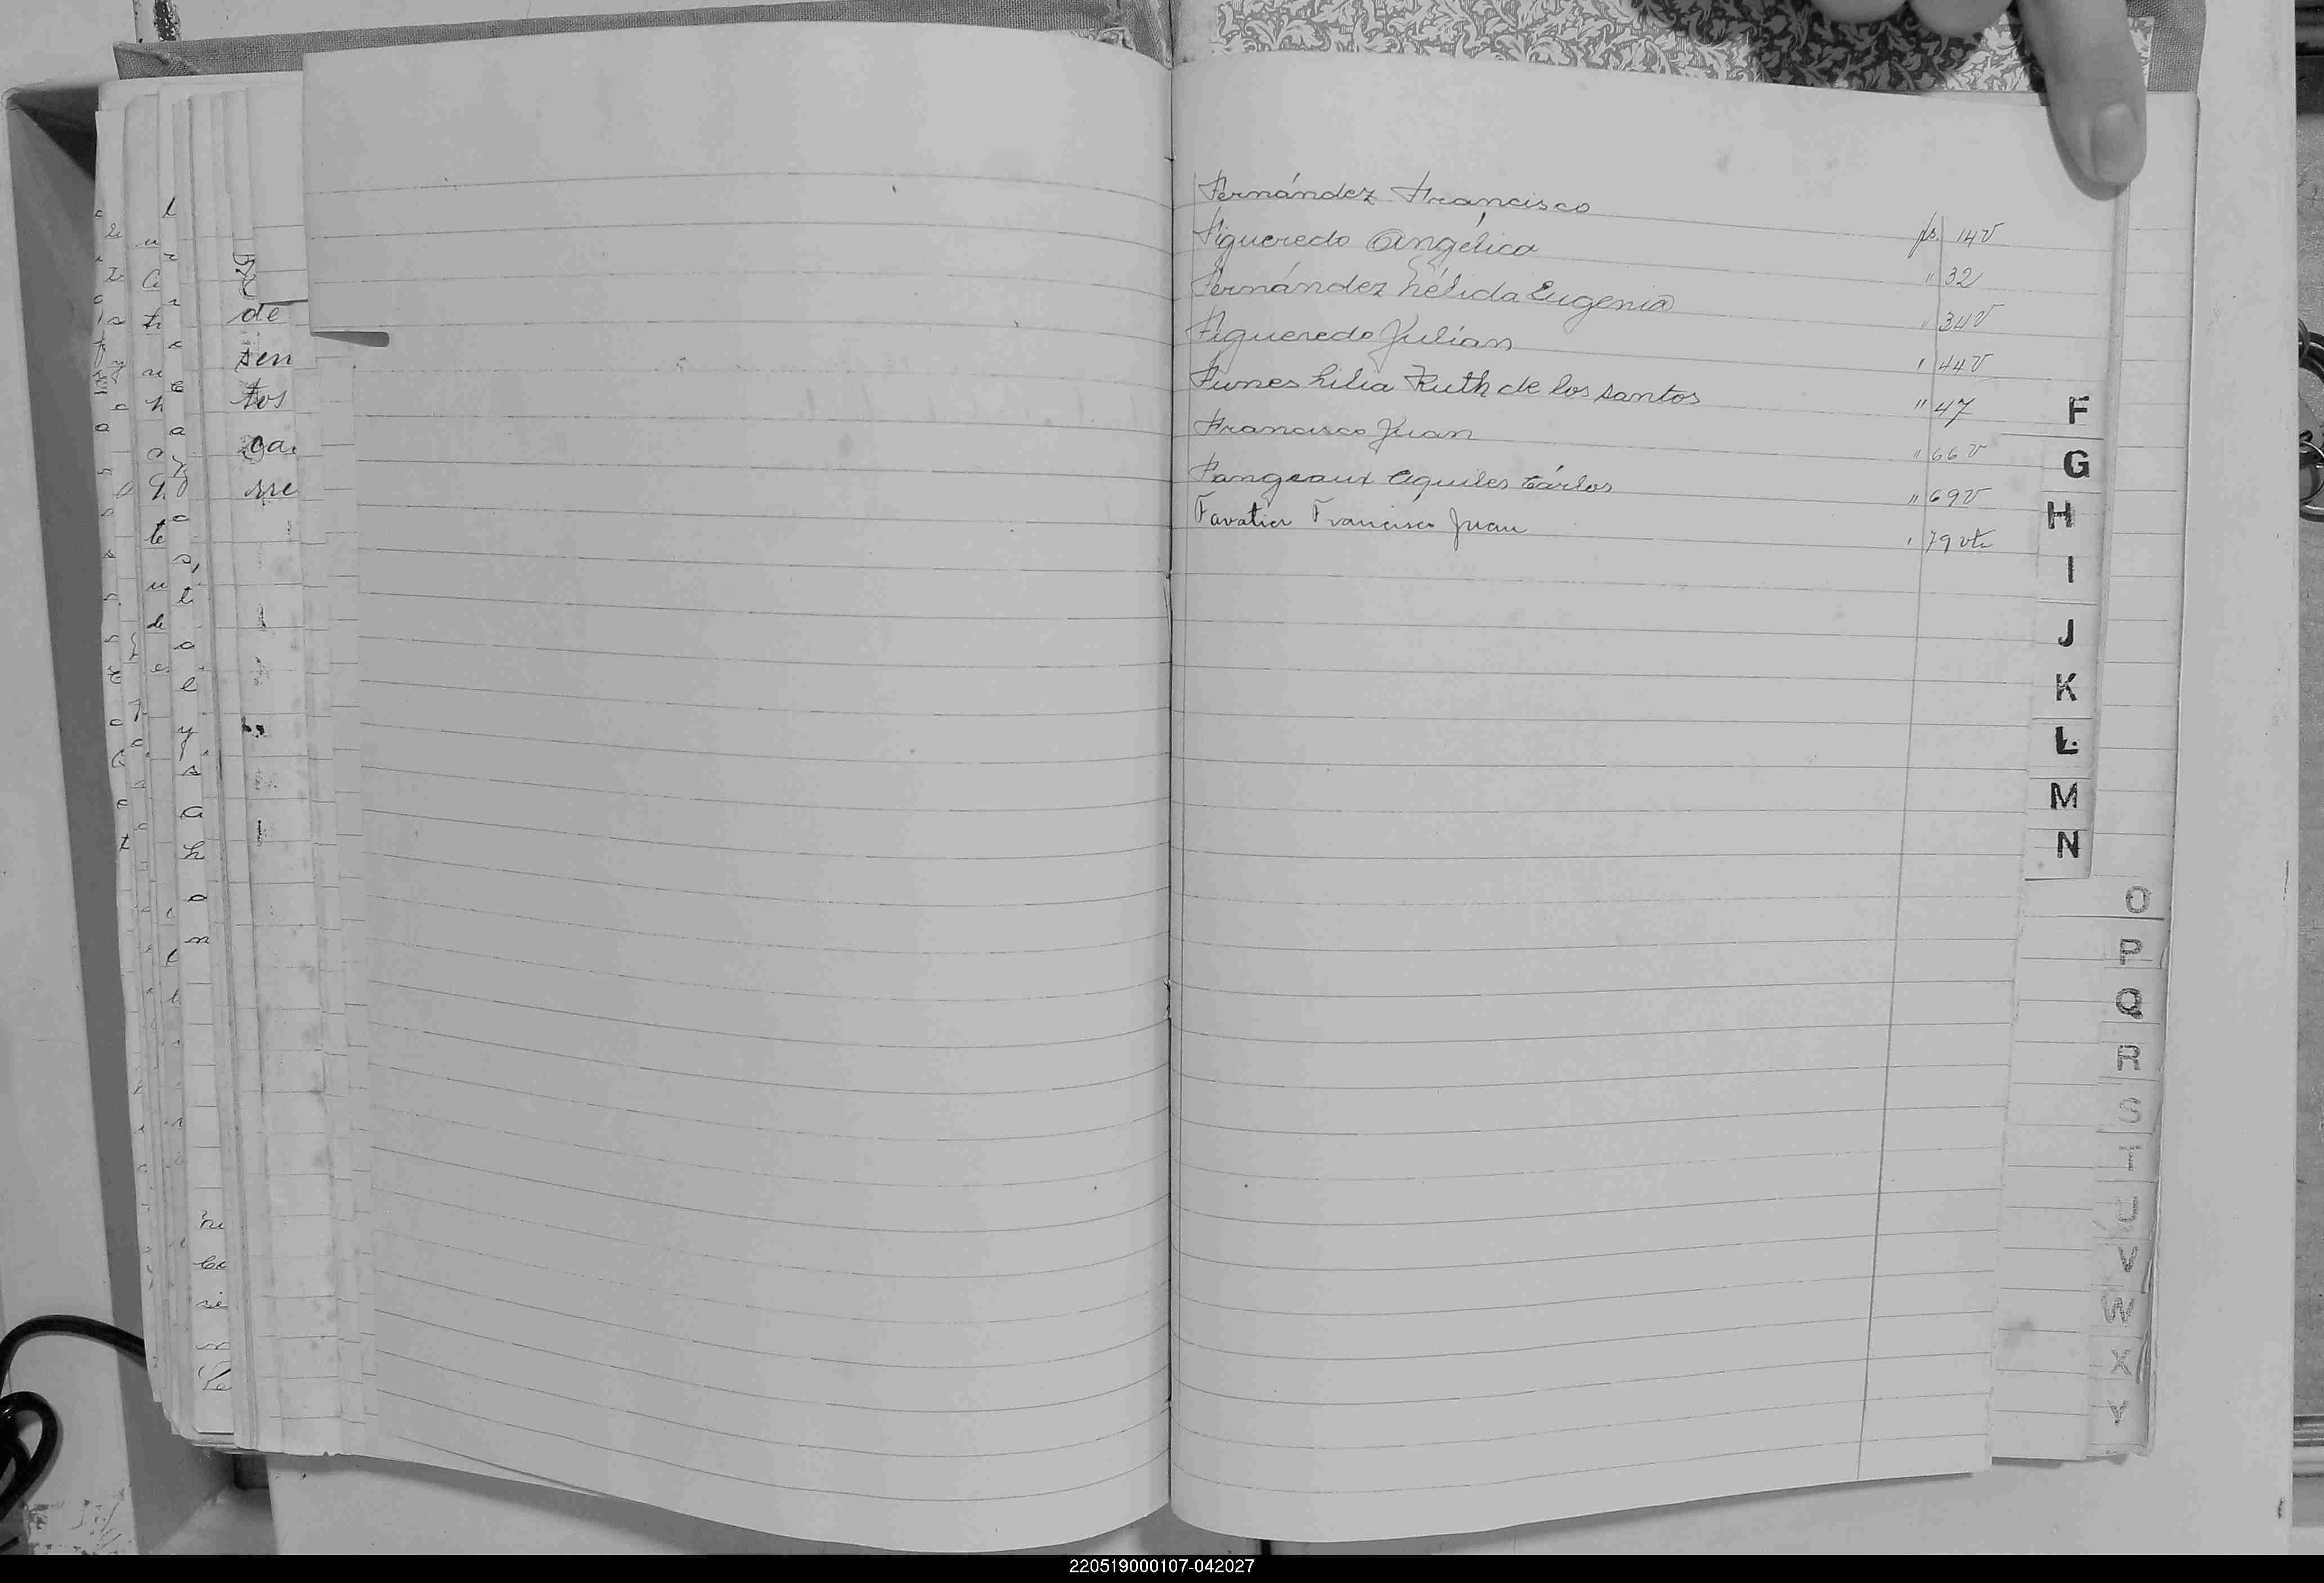 Fernández Francisco fs. 14v
Figueredo Angélica " 32
Fernández Nélida Eugenia " 34v
Figueredo Julián " 44v
Funes Lilia Ruth de los santos " 47
Francisco Juan " 66v
Fangeaux Aquiles Cárlos " 69v
Favatier Francisco Juan " 79 vta
de
sen
tos
F
G
H
I
J
K
L
M
N
O
P
Q
R
S
T
U
V
W
X
Y
220519000107-042027